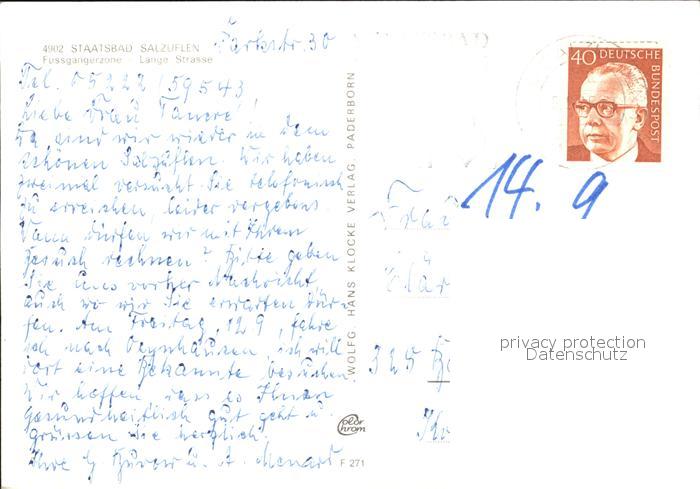 Parkstr. 30
4902 STAATSBAD SALZUFLEN
Fussgängerzone - Lange Strasse
Tel. 05222/59543
Liebe Frau
Da sind wir wieder in dem
schönen Salzuflen. Wir haben
zweimal versucht Sie telefonisch
zu erreichen, leider vergebens
Wann dürfen wir mit Ihrem
Besuch rechnen? Bitte geben
Sie uns vorher Nachricht
auch wo wir Sie erwarten dür-
fen. Am Freitag, 12.9, fahre
ich nach Oeynhausen, ich will
dort eine Bekannte besuchen.
Wir hoffen dass es Ihnen
gesundheitlich gut geht u.
grüssen Sie herzlich.
Ihre u. A. Menard
WOLFG. HANS KLOCKE VERLAG, PADERBORN
color chrom
F 271
40 DEUTSCHE
BUNDESPOST
14. 9
325
privacy protection
Datenschutz